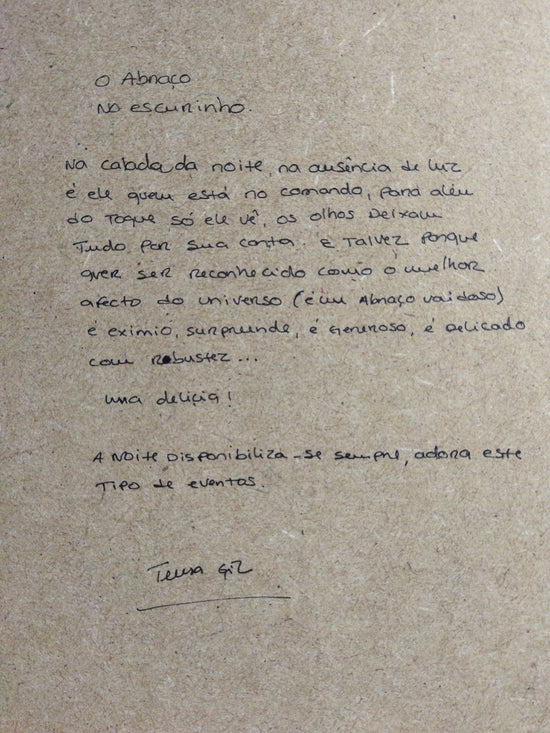 O Abraço
no escurinho.
Na calada da noite, na ausência de luz
é ele quem está no comando, para além
do toque só ele vê, os olhos deixam
tudo por sua conta. E talvez porque
quer ser reconhecido como o melhor
afecto do universo (é um Abraço vaidoso)
é exímio, surpreende, é generoso, é delicado
com robustez...
uma delícia!
A noite disponibiliza-se sempre, adora este
tipo de eventos.
Teresa Gil